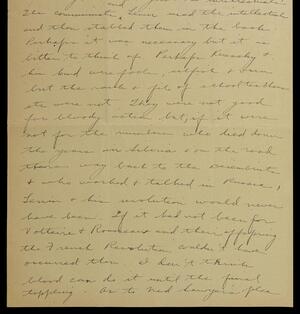 and
The communists, Lenin used the intellectuals
and then stabbed them in the back.
Perhaps it was necessary but it is
bitter to think of. Perhaps Kerensky &
his kind were fools, selfish & vain
but the rank & file of schoolteachers
etc were not. They were not good
for bloody action but, if it were
not for the numbers who died down
the years in Siberia & on the road
there way back to the Decembrists
& who worked & talked in Russia,
Lenin & his revolution would never
have been. If it had not been for
Voltaire & Rousseau and their offspring
the French Revolution couldn't have
occurred then. I don't think
blood can do it until the final
toppling. As to Ned Sawyer's plea